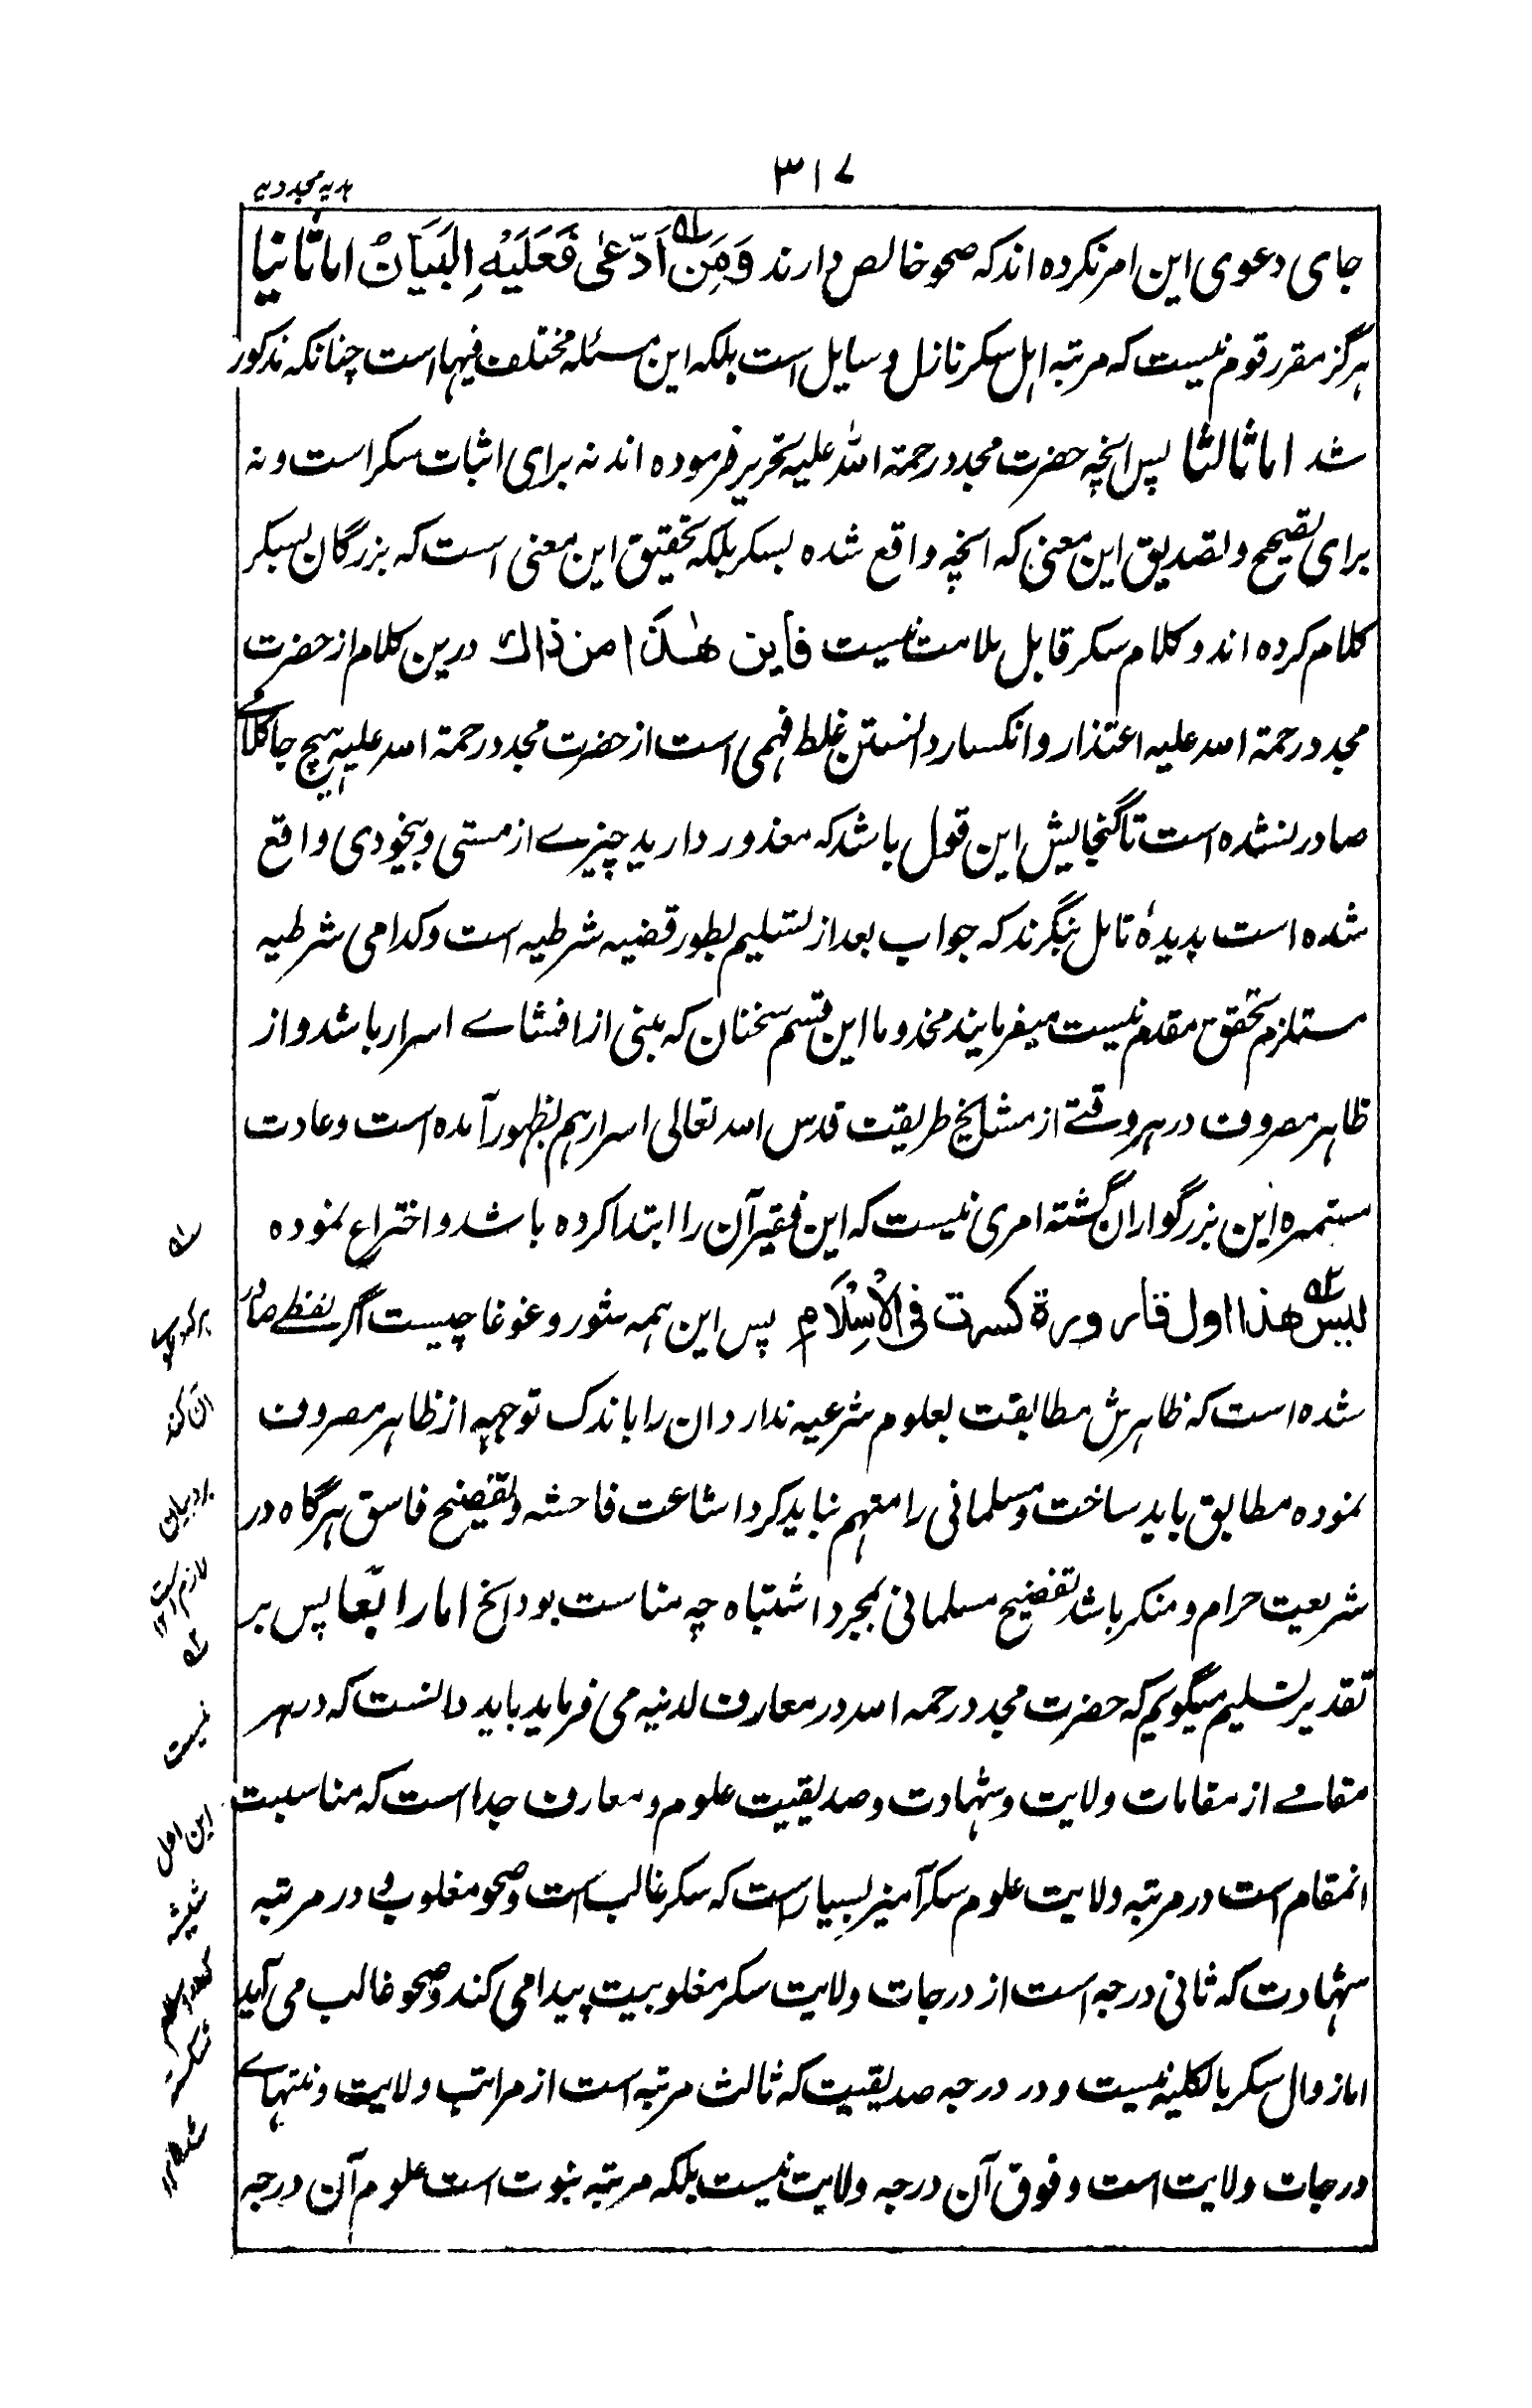 ۳۱۷
هدیه مجددیه
جای دعوی این امر نکرده اند که صحو خالص دارند وَمَنِ ادَّعٰی فَعَلَیْهِ الْبَیَانُ اما ثانیا
هرگز مقرر قوم نیست که مرتبه اهل سکر نازل و سایل است بلکه این مسئله مختلف فیها است چنانکه مذکور
شد اما ثالثا پس انچه حضرت مجدد رحمة الله علیه تحریر فرموده اند نه برای اثبات سکر است و نه
برای تصحیح و تصدیق این معنی که انچه واقع شده بسکر بلکه تحقیق این معنی است که بزرگان بسکر
کلام کرده اند و کلام سکر قابل ملامت نیست فاین هٰذا من ذاك درین کلام از حضرت
مجدد رحمة الله علیه اعتذار و انکسار دانستن غلط فهمی است از حضرت مجدد رحمة الله علیه هیچ جا کلامے
صادر نشده است تا گنجایش این قول باشد که معذور دارید چیزے از مستی و بیخودی واقع
شده است بدیدهٔ تامل بنگرند که جواب بعد از تسلیم بطور قضیه شرطیه است و کدامی شرطیه
مستلزم تحقق مقدم نیست میفرمایند مخدوما این قسم سخنان که مبنی از افشاے اسرار باشد و از
ظاهر مصروف در هر وقتے از مشایخ طریقت قدس الله تعالی اسرارهم بظهور آمده است و عادت
مستمره این بزرگواران گشته امری نیست که این فقیر آن را ابتدا کرده باشد و اختراع نموده
لیس هذا اول قارورة کسرت فی الْاِسْلَامِ پس این همه شور و غوغا چیست اگر لفظے صادر
شده است که ظاهرش مطابقت بعلوم شرعیه ندارد ان را باندک توجهه از ظاهر مصروف
نموده مطابق باید ساخت و مسلمانی را متهم نباید کرد اشاعت فاحشه و تفضیح فاسق هرگاه در
شریعت حرام و منکر باشد تفضیح مسلمانی بمجرد اشتباه چه مناسب بود الخ اما رابعا پس بر
تقدیر تسلیم میگویم که حضرت مجدد رحمه الله در معارف لدنیه می فرماید باید دانست که در هر
مقامے از مقامات ولایت و شهادت و صدیقیت علوم و معارف جدا است که مناسبت
انمقام است در مرتبه ولایت علوم سکر آمیز بسیار است که سکر غالب است و صحو مغلوب و در مرتبه
شهادت که ثانی درجه است از درجات ولایت سکر مغلوبیت پیدا می کند و صحو غالب می آید
اما زوال سکر بالکلیه نیست و در درجه صدیقیت که ثالث مرتبه است از مراتب ولایت و منتهاے
درجات ولایت است و فوق آن درجه ولایت نیست بلکه مرتبه نبوت است علوم آن درجه
ہرکہ دعوی
آن کند
بر و بیان
لازم است
۱۲
نیست
این اول
شیشه
کہ در اسلام
شکسته
شد ۱۲